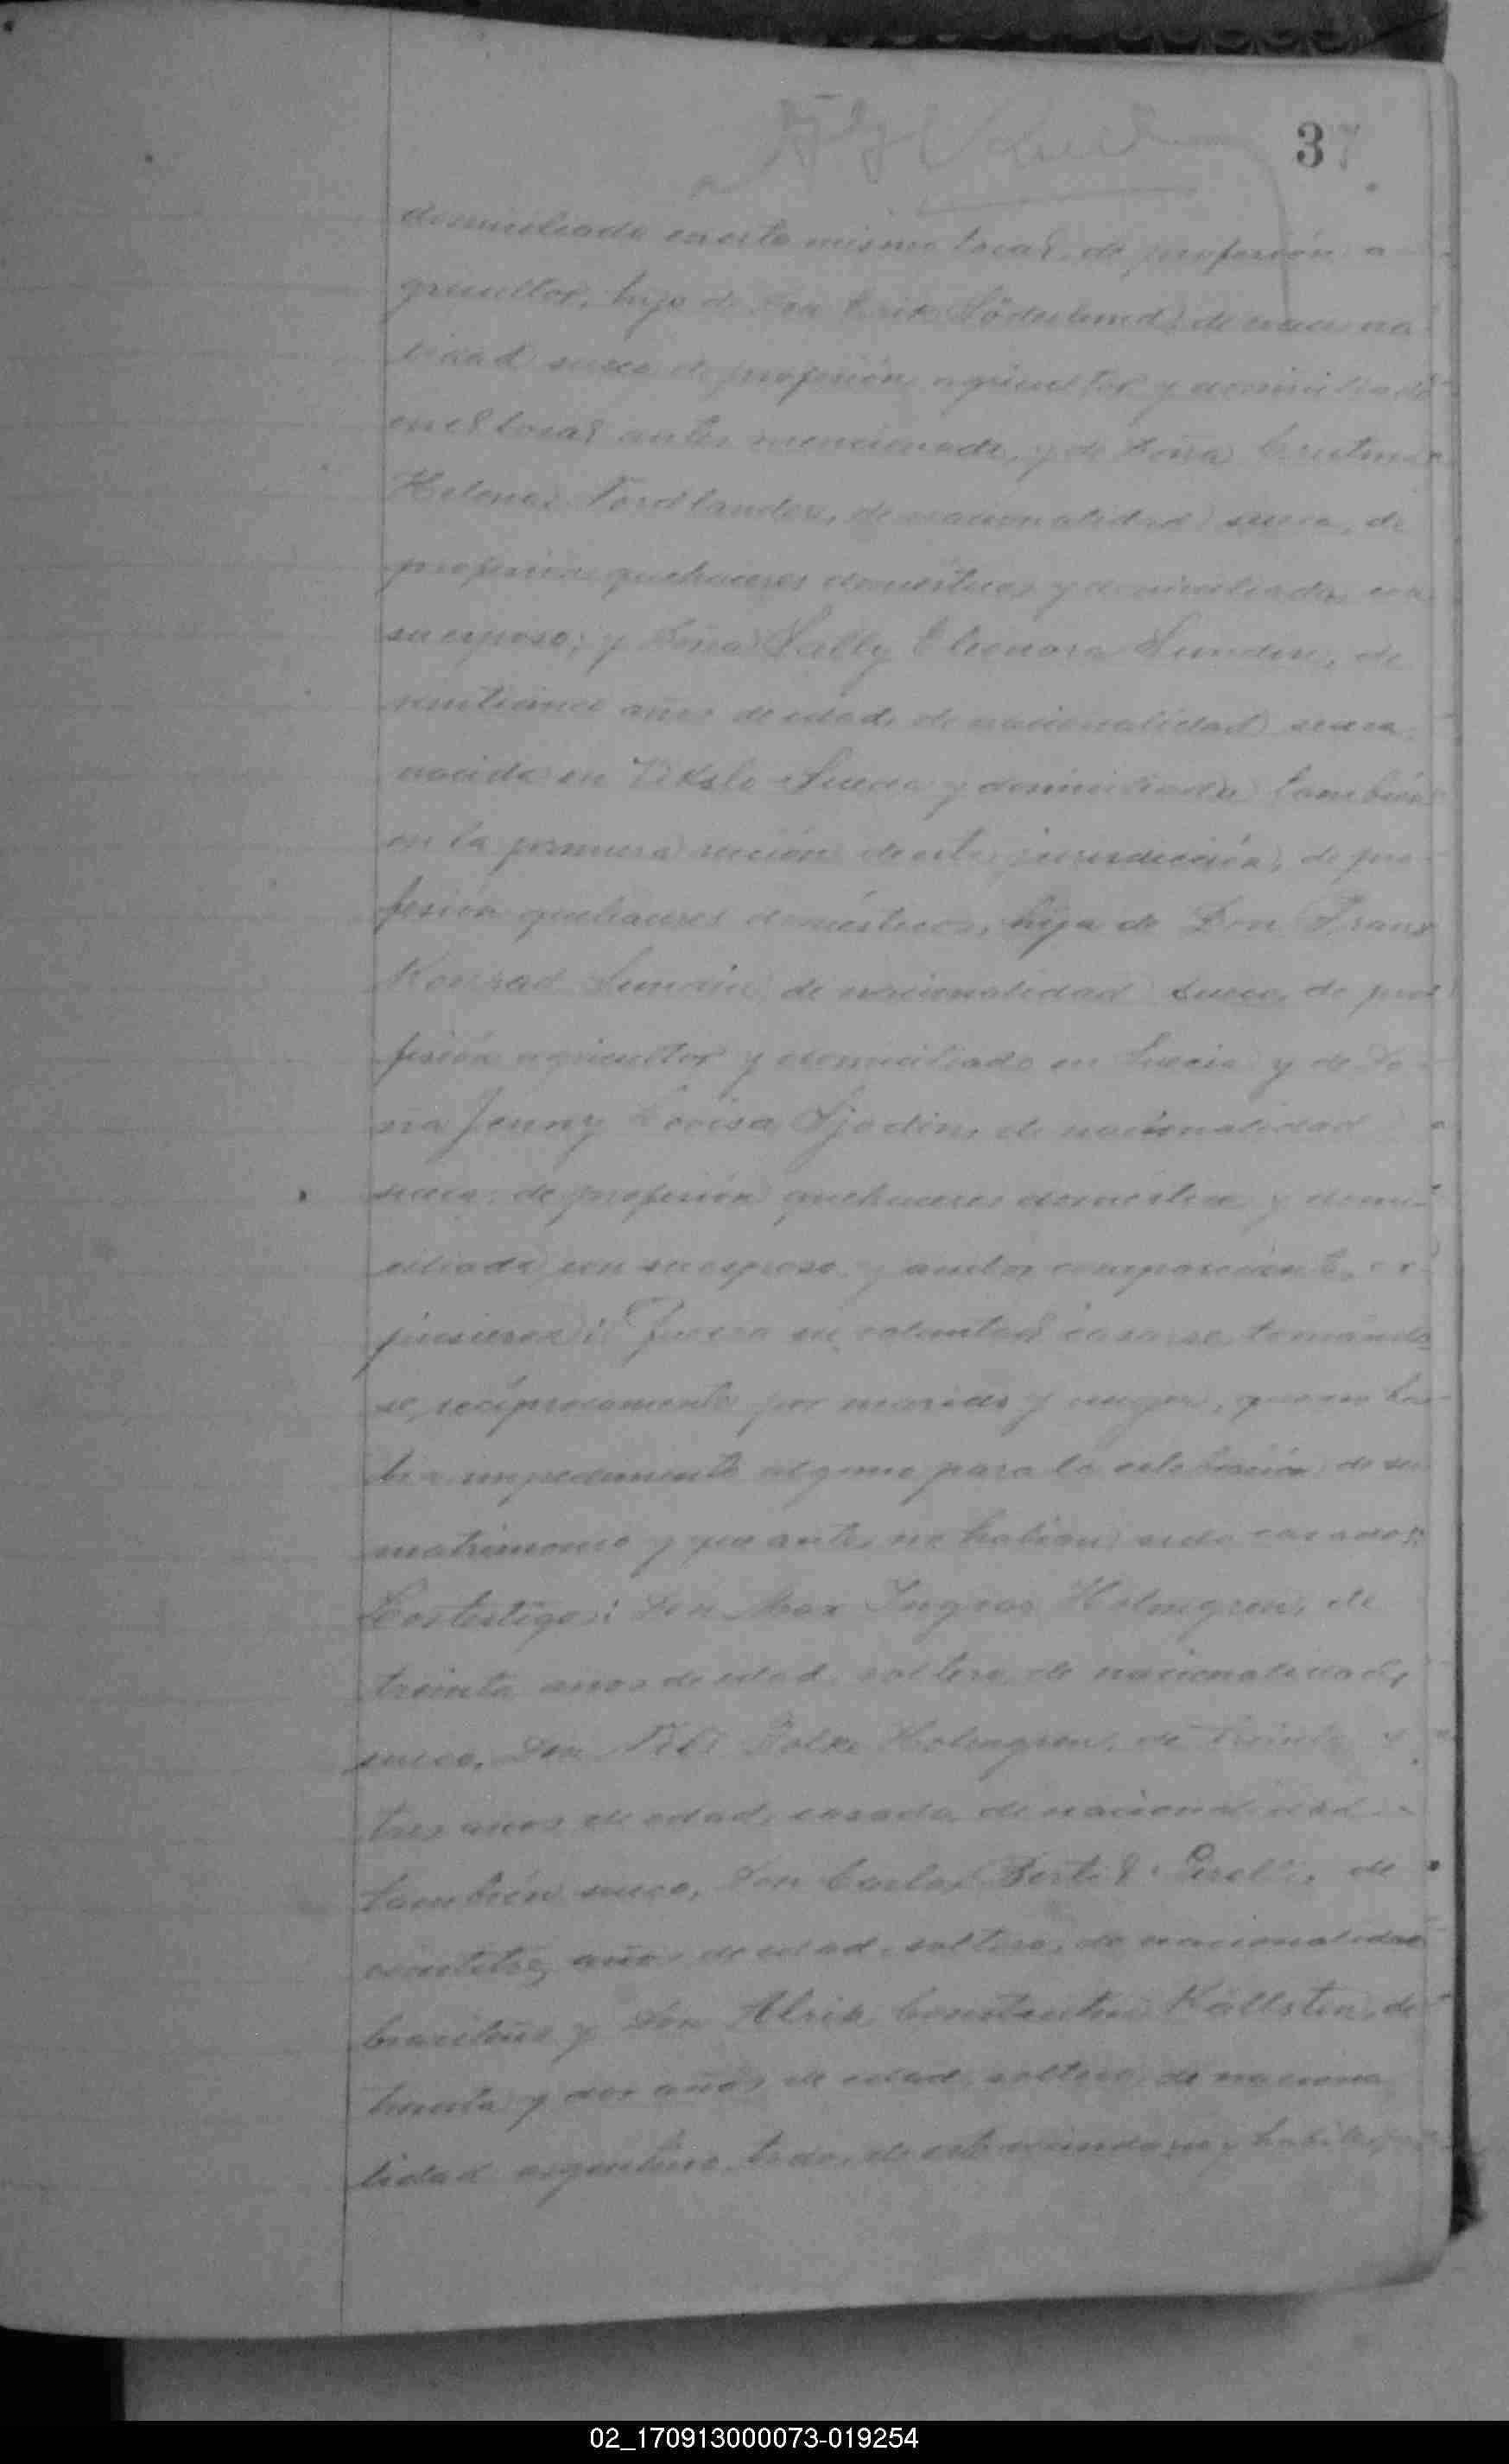 37
domiciliado en este mismo local, de profesión a-
gricultor, hijo de Don Erik Söderlund, de naciona-
lidad sueca de profesión agricultor y domiciliado
en el local antes mencionado, y de Doña Cristina
Helena Nordlander, de nacionalidad sueca, de
profesión quehaceres domésticos y domiciliada con
su esposo; y Doña Sally Eleonora Sundin, de
años de edad, de nacionalidad sueca,
nacida en Suecia y domiciliada también
en la primera sección de esta jurisdicción, de pro-
fesión quehaceres domésticos, hija de Don Frans
Konrad Sundin de nacionalidad sueco, de pro-
fesión agricultor y domiciliado en Suecia y de Do-
ña Jenny Lovisa Sjödin, de nacionalidad
sueca, de profesión quehaceres domésticos y domi-
ciliada con su esposo y ambos comparecientes ex-
pusieron: Que era su voluntad casarse tomándo
se recíprocamente por marido y mujer, que no ha-
bía impedimento alguno para la celebración de su
matrimonio y que antes no habían sido casados:
Los testigos: Don Max Ingvar Holmgren, de
treinta años de edad, soltero, de nacionalidad,
sueco, Don Nils Folke Holmgren, de treinta y
tres años de edad, casado, de nacionalidad
también sueco, Don Carlos Bertil de
veintitres años de edad, soltero, de nacionalidad
brasileño y Don Alrik Constantin Källsten, de
treinta y dos años de edad, soltero, de naciona
lidad argentino, todos de este vecindario y hábiles,
02_170913000073-019254